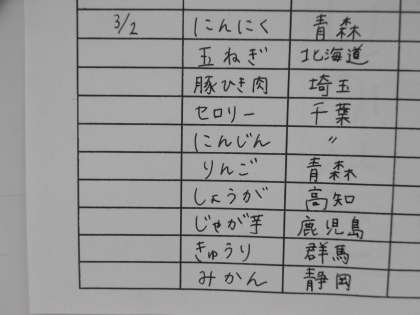 3/2 にんにく 青森
玉ねぎ 北海道
豚ひき肉 埼玉
セロリー 千葉
にんじん 〃
りんご 青森
しょうが 高知
じゃが芋 鹿児島
きゅうり 群馬
みかん 静岡